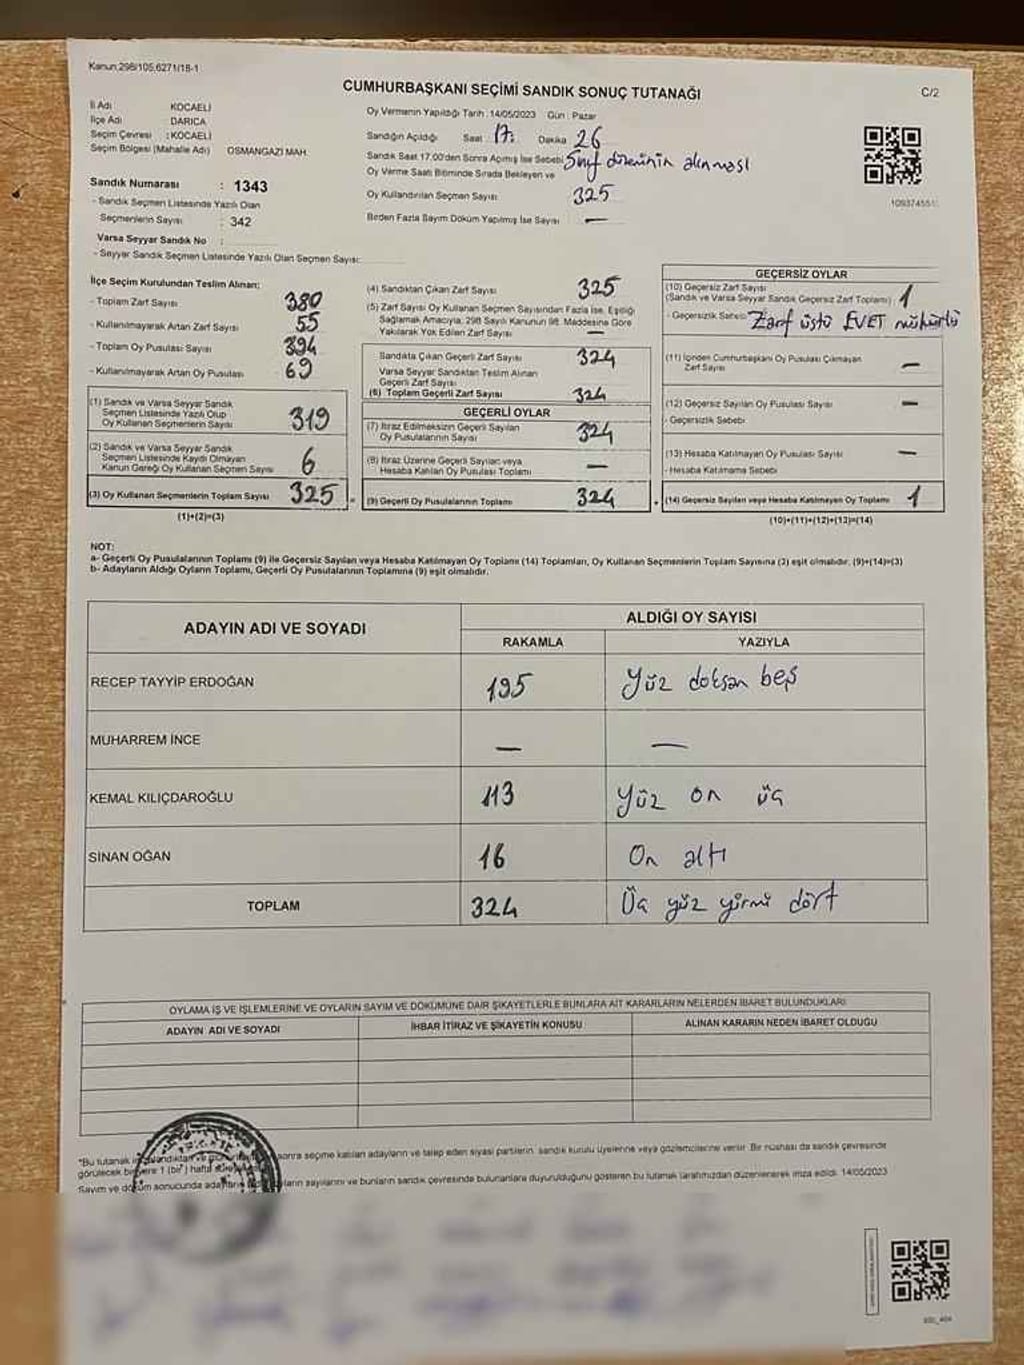 Kanun:298/105,6271/18-1
CUMHURBAŞKANI SEÇİMİ SANDIK SONUÇ TUTANAĞI
C/2
İl Adı KOCAELİ
İlçe Adı DARICA
Seçim Çevresi : KOCAELİ
Seçim Bölgesi (Mahalle Adı) OSMANGAZİ MAH.
Sandık Numarası : 1343
- Sandık Seçmen Listesinde Yazılı Olan
Seçmenlerin Sayısı : 342
Varsa Seyyar Sandık No :
- Seyyar Sandık Seçmen Listesinde Yazılı Olan Seçmen Sayısı:
Oy Vermenin Yapıldığı Tarih : 14/05/2023 Gün : Pazar
Sandığın Açıldığı Saat : 17: Dakika 26
Sandık Saat 17.00'den Sonra Açılmış İse Sebebi: Sınıf düzeninin alınması
Oy Verme Saati Bitiminde Sırada Bekleyen ve
Oy Kullandırılan Seçmen Sayısı 325
Birden Fazla Sayım Döküm Yapılmış İse Sayısı —
İlçe Seçim Kurulundan Teslim Alınan;
- Toplam Zarf Sayısı 380
- Kullanılmayarak Artan Zarf Sayısı 55
- Toplam Oy Pusulası Sayısı 394
- Kullanılmayarak Artan Oy Pusulası 69
(1) Sandık ve Varsa Seyyar Sandık
Seçmen Listesinde Yazılı Olup
Oy Kullanan Seçmenlerin Sayısı 319
(2) Sandık ve Varsa Seyyar Sandık
Seçmen Listesinde Kaydı Olmayan
Kanun Gereği Oy Kullanan Seçmen Sayısı 6
(3) Oy Kullanan Seçmenlerin Toplam Sayısı 325
(1)+(2)=(3)
(4) Sandıktan Çıkan Zarf Sayısı 325
(5) Zarf Sayısı Oy Kullanan Seçmen Sayısından Fazla İse, Eşitliği
Sağlamak Amacıyla, 298 Sayılı Kanunun 98. Maddesine Göre
Yakılarak Yok Edilen Zarf Sayısı —
Sandıkta Çıkan Geçerli Zarf Sayısı 324
Varsa Seyyar Sandıktan Teslim Alınan
Geçerli Zarf Sayısı
(6) Toplam Geçerli Zarf Sayısı 324
GEÇERLİ OYLAR
(7) İtiraz Edilmeksizin Geçerli Sayılan
Oy Pusulalarının Sayısı 324
(8) İtiraz Üzerine Geçerli Sayılan veya
Hesaba Katılan Oy Pusulası Toplamı —
(9) Geçerli Oy Pusulalarının Toplamı 324
GEÇERSİZ OYLAR
(10) Geçersiz Zarf Sayısı
(Sandık ve Varsa Seyyar Sandık Geçersiz Zarf Toplamı) 1
- Geçersizlik Sebebi Zarf üstü EVET mühürlü
(11) İçinden Cumhurbaşkanı Oy Pusulası Çıkmayan
Zarf Sayısı —
(12) Geçersiz Sayılan Oy Pusulası Sayısı —
- Geçersizlik Sebebi
(13) Hesaba Katılmayan Oy Pusulası Sayısı —
- Hesaba Katılmama Sebebi
(14) Geçersiz Sayılan veya Hesaba Katılmayan Oy Toplamı 1
(10)+(11)+(12)+(13)=(14)
NOT:
a- Geçerli Oy Pusulalarının Toplamı (9) ile Geçersiz Sayılan veya Hesaba Katılmayan Oy Toplamı (14) Toplamları, Oy Kullanan Seçmenlerin Toplam Sayısına (3) eşit olmalıdır. (9)+(14)=(3)
b- Adayların Aldığı Oyların Toplamı, Geçerli Oy Pusulalarının Toplamına (9) eşit olmalıdır.
ADAYIN ADI VE SOYADI ALDIĞI OY SAYISI
RAKAMLA YAZIYLA
RECEP TAYYİP ERDOĞAN 195 Yüz doksan beş
MUHARREM İNCE — —
KEMAL KILIÇDAROĞLU 113 Yüz on üç
SİNAN OĞAN 16 On altı
TOPLAM 324 Üç yüz yirmi dört
OYLAMA İŞ VE İŞLEMLERİNE VE OYLARIN SAYIM VE DÖKÜMÜNE DAİR ŞİKAYETLERLE BUNLARA AİT KARARLARIN NELERDEN İBARET BULUNDUKLARI
ADAYIN ADI VE SOYADI İHBAR İTİRAZ VE ŞİKAYETİN KONUSU ALINAN KARARIN NEDEN İBARET OLDUĞU
*Bu tutanak sonra seçime katılan adayların ve talep eden siyasi partilerin sandık kurulu üyelerine veya gözlemcilerine verilir. Bir nüshası da sandık çevresinde
görülecek bir yere 1 (bir) hafta
Sayım ve döküm sonucunda sayılarını ve bunların sandık çevresinde bulunanlara duyurulduğunu gösteren bu tutanak tarafımızdan düzenlenerek imza edildi. 14/05/2023